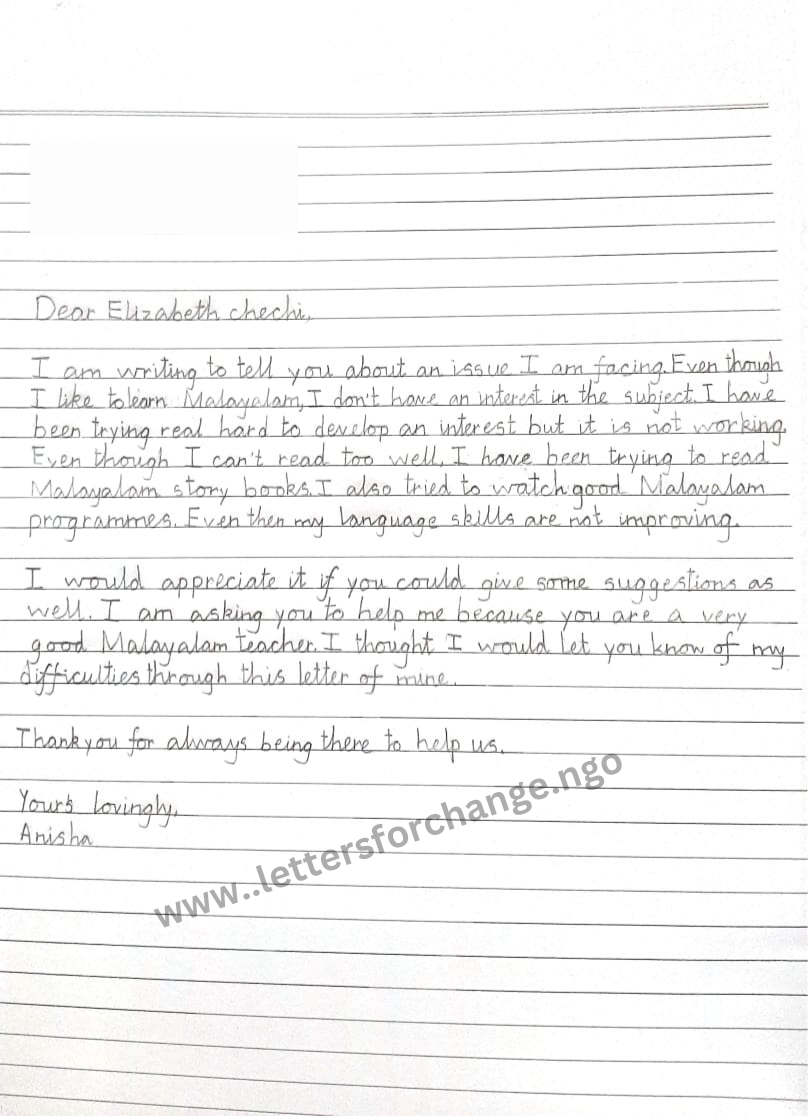 Dear Elizabeth chechi,
I am writing to tell you about an issue I am facing. Even though
I like to learn Malayalam, I don't have an interest in the subject. I have
been trying real hard to develop an interest but it is not working.
Even though I can't read too well, I have been trying to read
Malayalam story books. I also tried to watch good Malayalam
programmes. Even then my language skills are not improving.
I would appreciate it if you could give some suggestions as
well. I am asking you to help me because you are a very
good Malayalam teacher. I thought I would let you know of my
difficulties through this letter of mine.
Thank you for always being there to help us.
Your's lovingly,
Anisha
www..lettersforchange.ngo